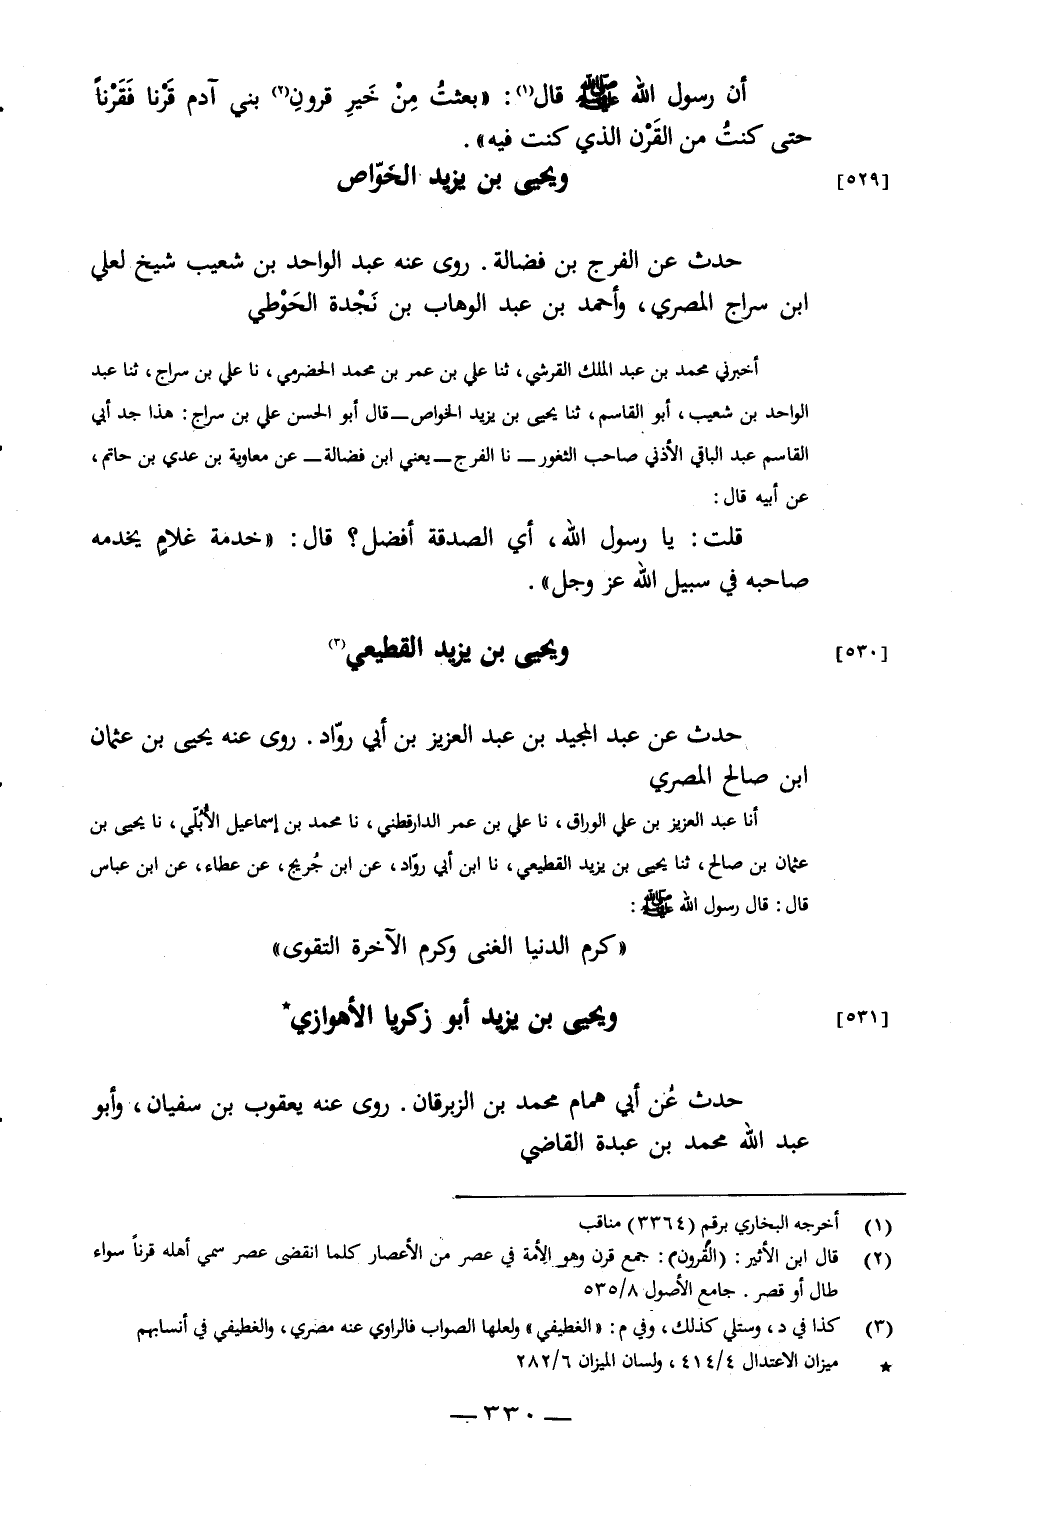 أن رسول الله ﷺ قال(١): «بعثتُ مِنْ خَيرِ قرونِ(٢) بني آدم قَرْنا فَقَرْناً
حتى كنتُ من القَرْن الذي كنت فيه».
[٥٢٩] ويحيى بن يزيد الخَوّاص
حدث عن الفرج بن فضالة. روى عنه عبد الواحد بن شعيب شيخ لعلي
ابن سراج المصري، وأحمد بن عبد الوهاب بن نَجْدة الحَوْطي
أخبرني محمد بن عبد الملك القرشي، ثنا علي بن عمر بن محمد الحضرمي، نا علي بن سراج، ثنا عبد
الواحد بن شعيب، أبو القاسم، ثنا يحيى بن يزيد الخواص ــ قال أبو الحسن علي بن سراج: هذا جد أبي
القاسم عبد الباقي الأذني صاحب الثغور ــ نا الفرج ــ يعني ابن فضالة ــ عن معاوية بن عدي بن حاتم،
عن أبيه قال:
قلت: يا رسول الله، أي الصدقة أفضل؟ قال: «خدمة غلامٍ يخدمه
صاحبه في سبيل الله عز وجل».
[٥٣٠] ويحيى بن يزيد القطيعي(٣)
حدث عن عبد المجيد بن عبد العزيز بن أبي روّاد. روى عنه يحيى بن عثمان
ابن صالح المصري
أنا عبد العزيز بن علي الوراق، نا علي بن عمر الدارقطني، نا محمد بن إسماعيل الأُبُلّي، نا يحيى بن
عثمان بن صالح، ثنا يحيى بن يزيد القطيعي، نا ابن أبي روّاد، عن ابن جُريج، عن عطاء، عن ابن عباس
قال: قال رسول الله ﷺ:
«كرم الدنيا الغنى وكرم الآخرة التقوى»
[٥٣١] ويحيى بن يزيد أبو زكريا الأهوازي*
حدث عُن أبي همام محمد بن الزبرقان. روى عنه يعقوب بن سفيان، وأبو
عبد الله محمد بن عبدة القاضي
(١) أخرجه البخاري برقم (٣٣٦٤) مناقب
(٢) قال ابن الأثير: (القُرون): جمع قرن وهو الأمة في عصر من الأعصار كلما انقضى عصر سمي أهله قرناً سواء
طال أو قصر. جامع الأصول ٥٣٥/٨
(٣) كذا في د، وستلي كذلك، وفي م: «الغطيفي» ولعلها الصواب فالراوي عنه مصري، والغطيفي في أنسابهم
★ ميزان الاعتدال ٤١٤/٤، ولسان الميزان ٢٨٢/٦
ــ ٣٣٠ ــ